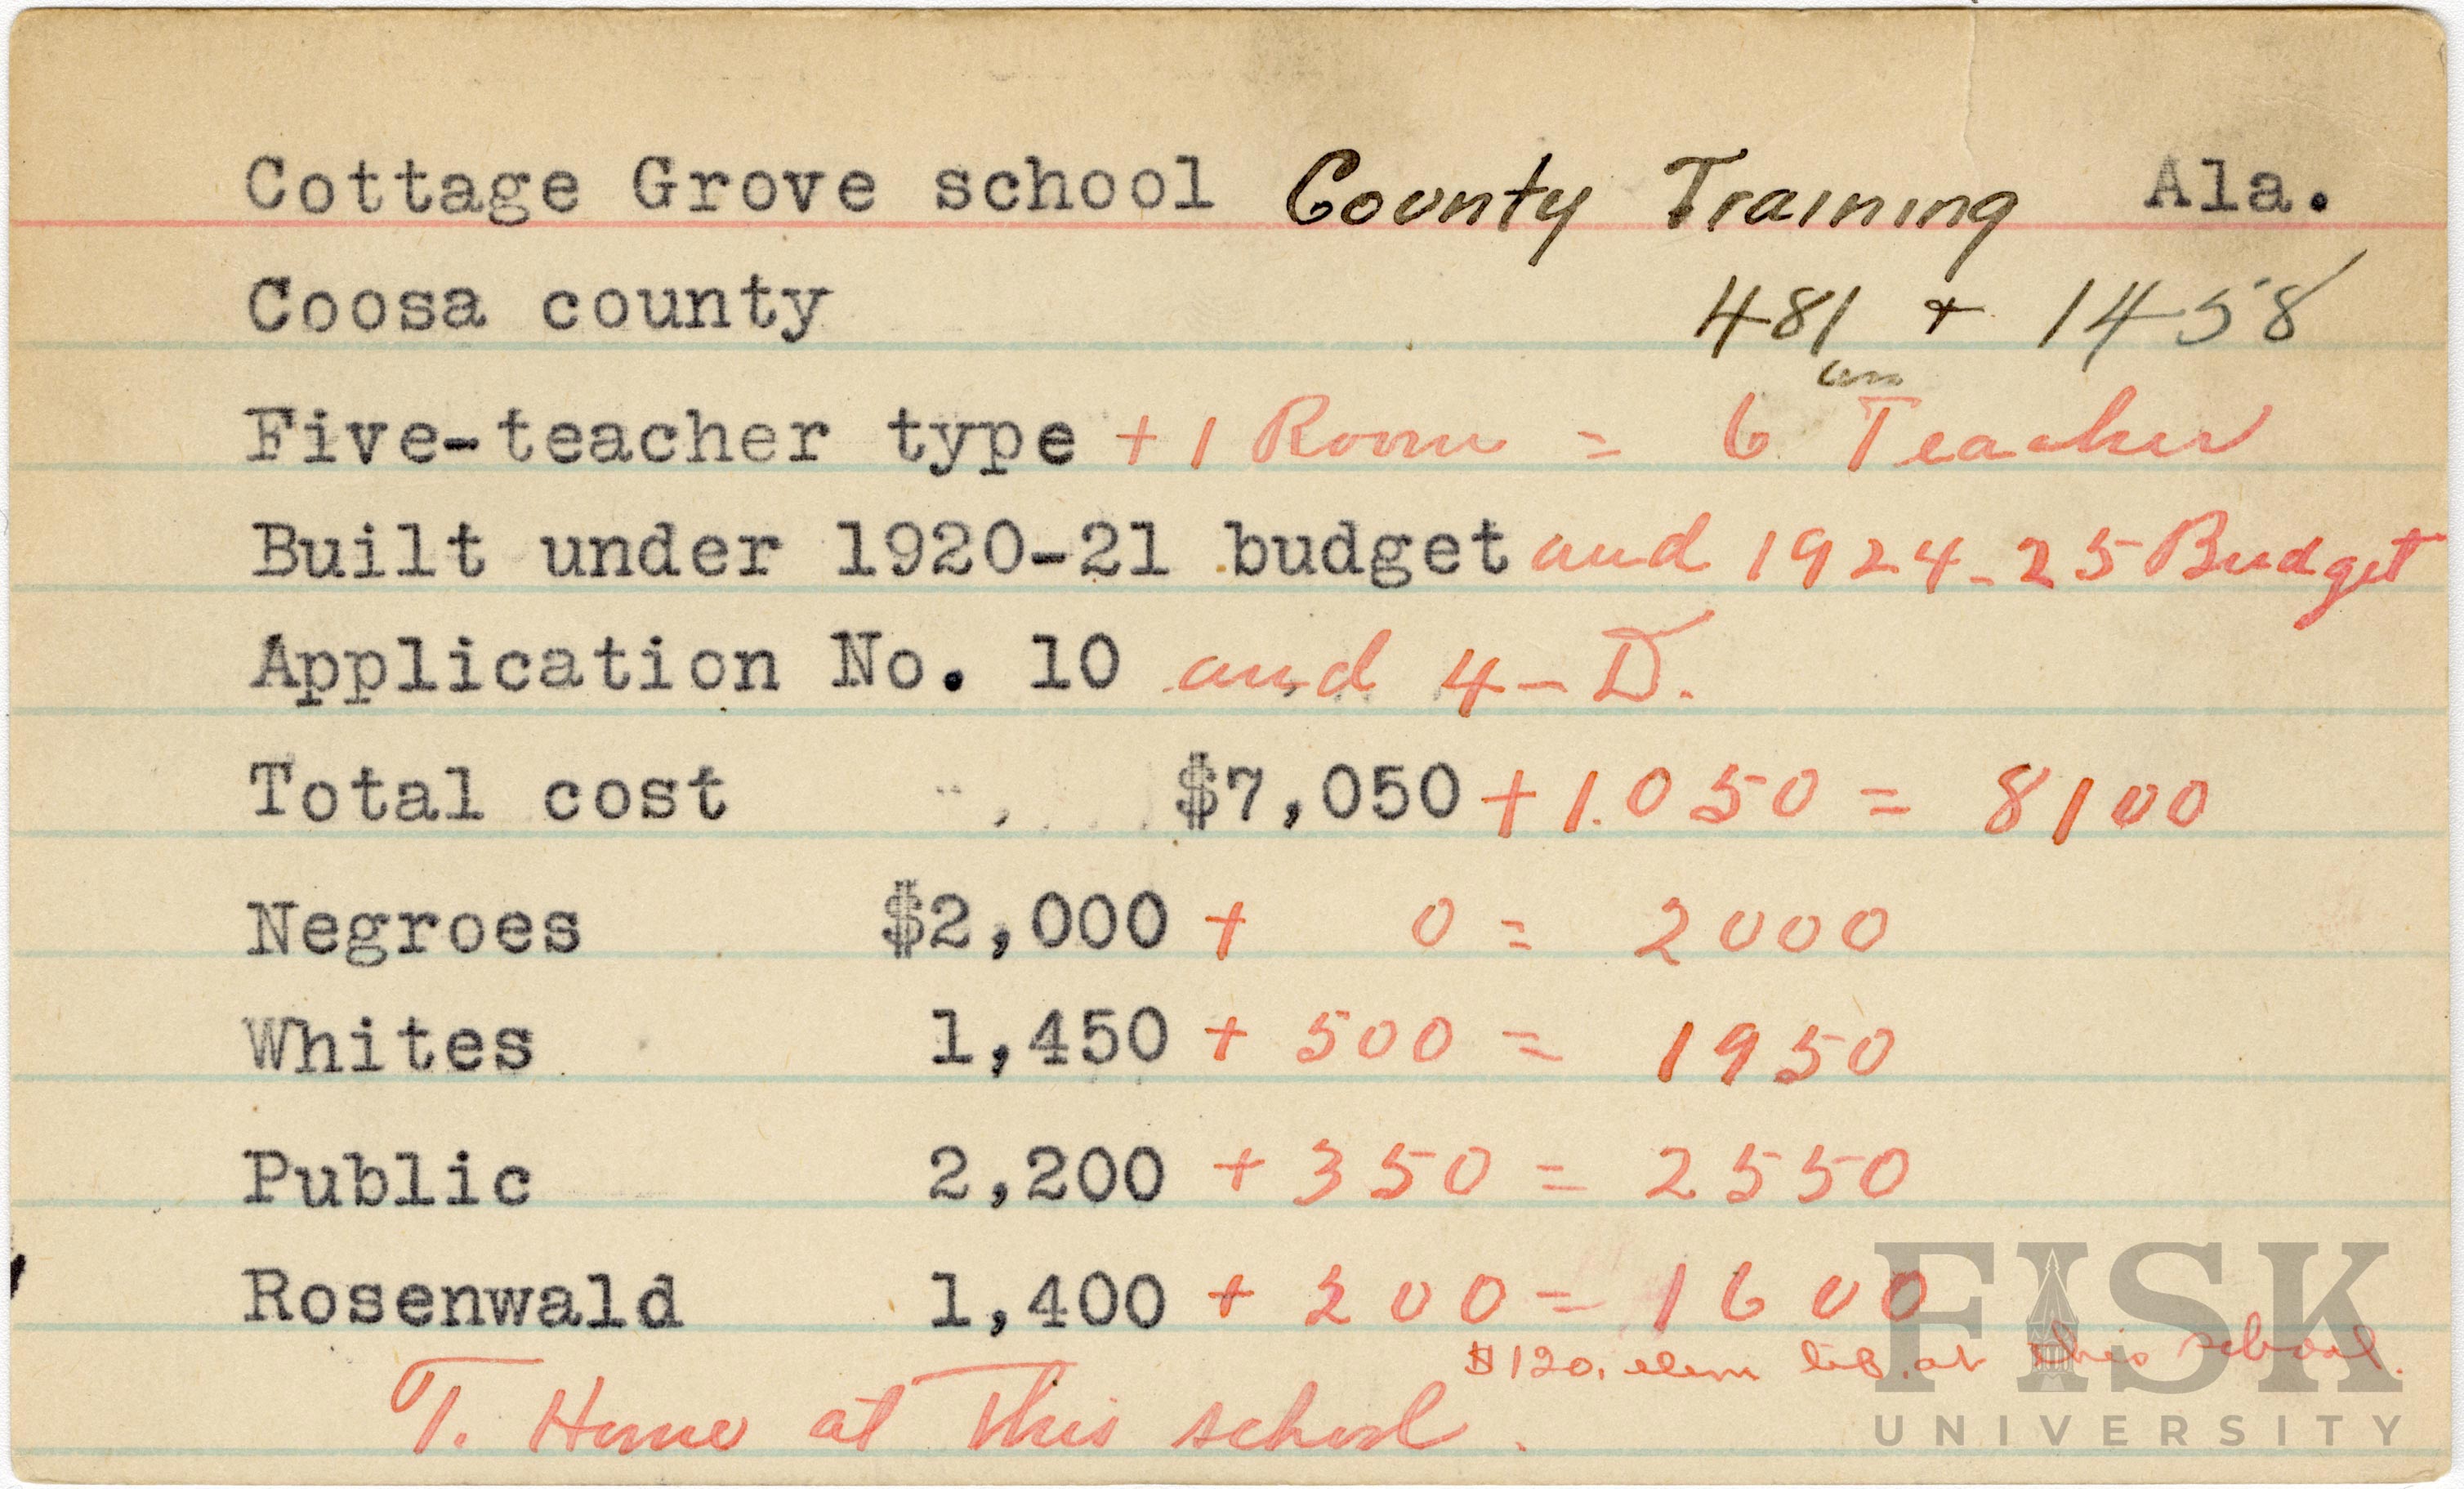 Cottage Grove school County Training Ala.
Coosa county 481 + 1458
Five-teacher type + 1 Room = 6 Teacher
Built under 1920-21 budget and 1924-25 Budget
Application No. 10 and 4-D.
Total cost $7,050 + 1.050 = 8100
Negroes $2,000 + 0 = 2000
Whites 1,450 + 500 = 1950
Public 2,200 + 350 = 2550
Rosenwald 1,400 + 200 = 1600
$120. elem lib. at this school.
T. Home at this school.
FISK
UNIVERSITY